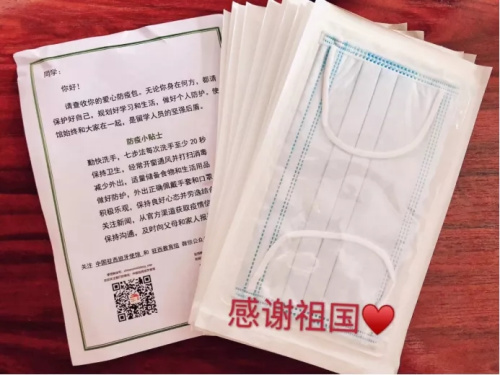 同学：
你好！
请查收你的爱心防疫包。无论你身在何方，都请
保护好自己，规划好学习和生活，做好个人防护，使
馆始终和大家在一起，是留学人员的坚强后盾。
防疫小贴士
勤快洗手，七步法每次洗手至少 20 秒
保持卫生，经常开窗通风并打扫消毒
减少外出，适量储备食物和生活用品
做好防护，外出正确佩戴手套和口罩
积极乐观，保持良好心态并劳逸结合
关注新闻，从官方渠道获取疫情信
保持沟通，及时向父母和家人报
关注 中国驻西班牙使馆 和 驻西教育组 微信公众
感谢祖国❤